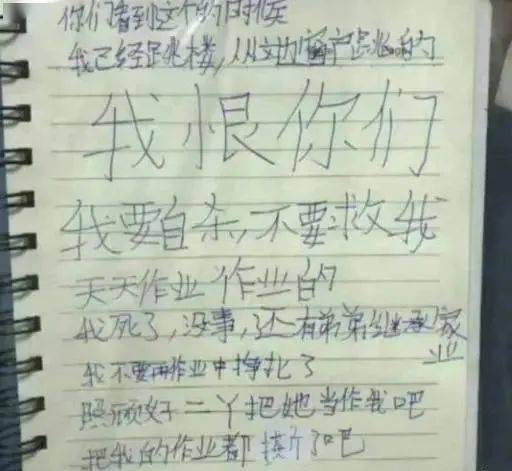 你们看到这个的时候
我已经跳楼,从这边窗户跳的
我恨你们
我要自杀,不要救我
天天作业作业的
我死了,没事,还有弟弟继承家业
我不要再作业中挣扎了
照顾好二丫把她当作我吧
把我的作业都撕了吧